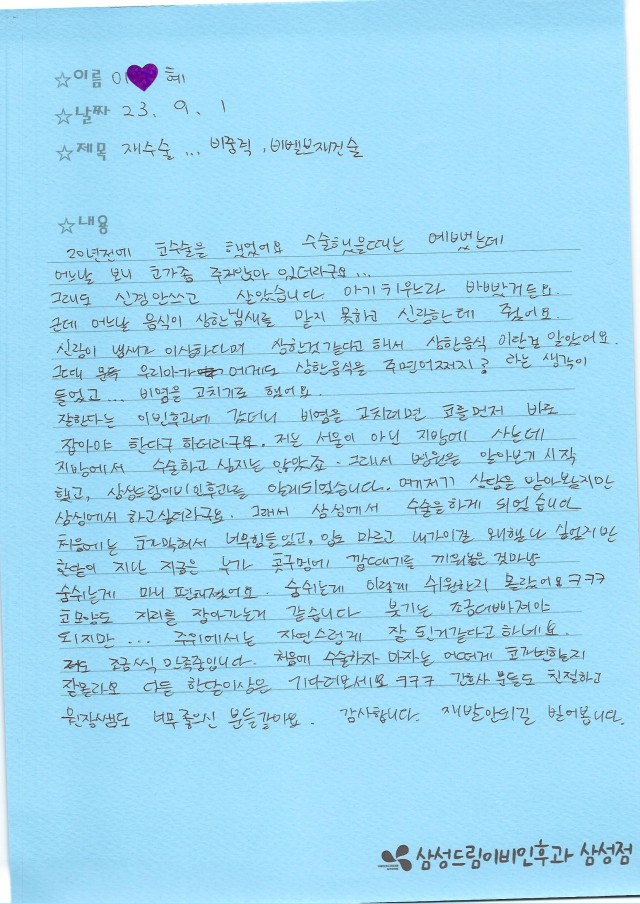 ☆이름 이💜혜
☆날짜 23. 9. 1
☆제목 재수술 ... 비중격, 비밸브재건술
☆내용
20년전에 코수술을 했었어요 수술했을때는 예뻤는데
어느날 보니 코가좀 주저앉아 있더라구요...
그래도 신경안쓰고 살았습니다. 아기키우느라 바빴거든요.
근데 어느날 음식이 상한냄새를 맡지 못하고 신랑한테 줬어요.
신랑이 냄새가 이상하다며 상한것같다고 해서 상한음식 이란걸 알았어요.
그때 문득 우리아가 에게도 상한음식을 주면어쩌지? 라는 생각이
들었고... 비염을 고치기로 했어요.
잘한다는 이빈후과에 갔더니 비염을 고치려면 코를먼저 바로
잡아야 한다구 하더라구요. 저는 서울이 아닌 지방에 사는데
지방에서 수술하고 싶지는 않았죠. 그래서 병원을 알아보기 시작
했고, 삼성드림이비인후과를 알게되었습니다. 여기저기 상담을 받아봤지만
삼성에서 하고싶더라구요. 그래서 삼성에서 수술을하게 되었습니다
처음에는 코가막혀서 너무힘들었고, 입도 마르고 내가이걸 왜했나 싶었지만
한달이 지난 지금은 누가 콧구멍에 깔때기를 끼워놓은 것마냥
숨쉬는게 마니 편해졌어요. 숨쉬는게 이렇게 쉬원한지 몰랐어요ㅋㅋㅋ
코모양도 자리를 잡아가는거 같습니다 붓기는 조금더빠져야
되지만... 주위에서는 자연스럽게 잘 된거같다고 하네요.
저도 조금씩 만족중입니다. 처음에 수술하자 마자는 어떠게 코가변할지
잘몰라요 다들 한달이상은 기다려보세요ㅋㅋㅋ 간호사 분들도 친절하고
원장쌤도 너무좋으신 분들같아요. 감사합니다. 재발안되길 빌어봅니다.
삼성드림이비인후과 삼성점